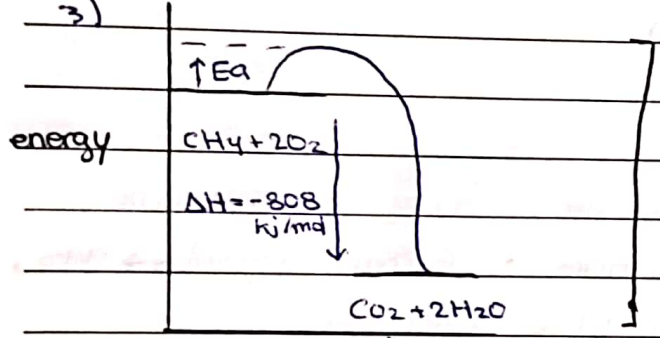 3)
↑Ea
energy
CH4+2O2
ΔH=-808
kj/mol
CO2+2H2O